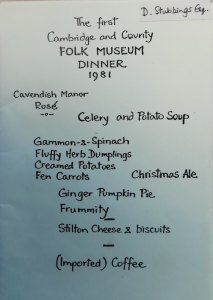 D. Stubbings Esq.
The first
Cambridge and County
FOLK MUSEUM
DINNER
1981
Cavendish Manor
Rosé
Celery and Potato Soup
Gammon-&-Spinach
Fluffy Herb Dumplings
Creamed Potatoes
Fen Carrots
Christmas Ale
Ginger Pumpkin Pie
Frummity
Stilton Cheese & biscuits
(Imported) Coffee